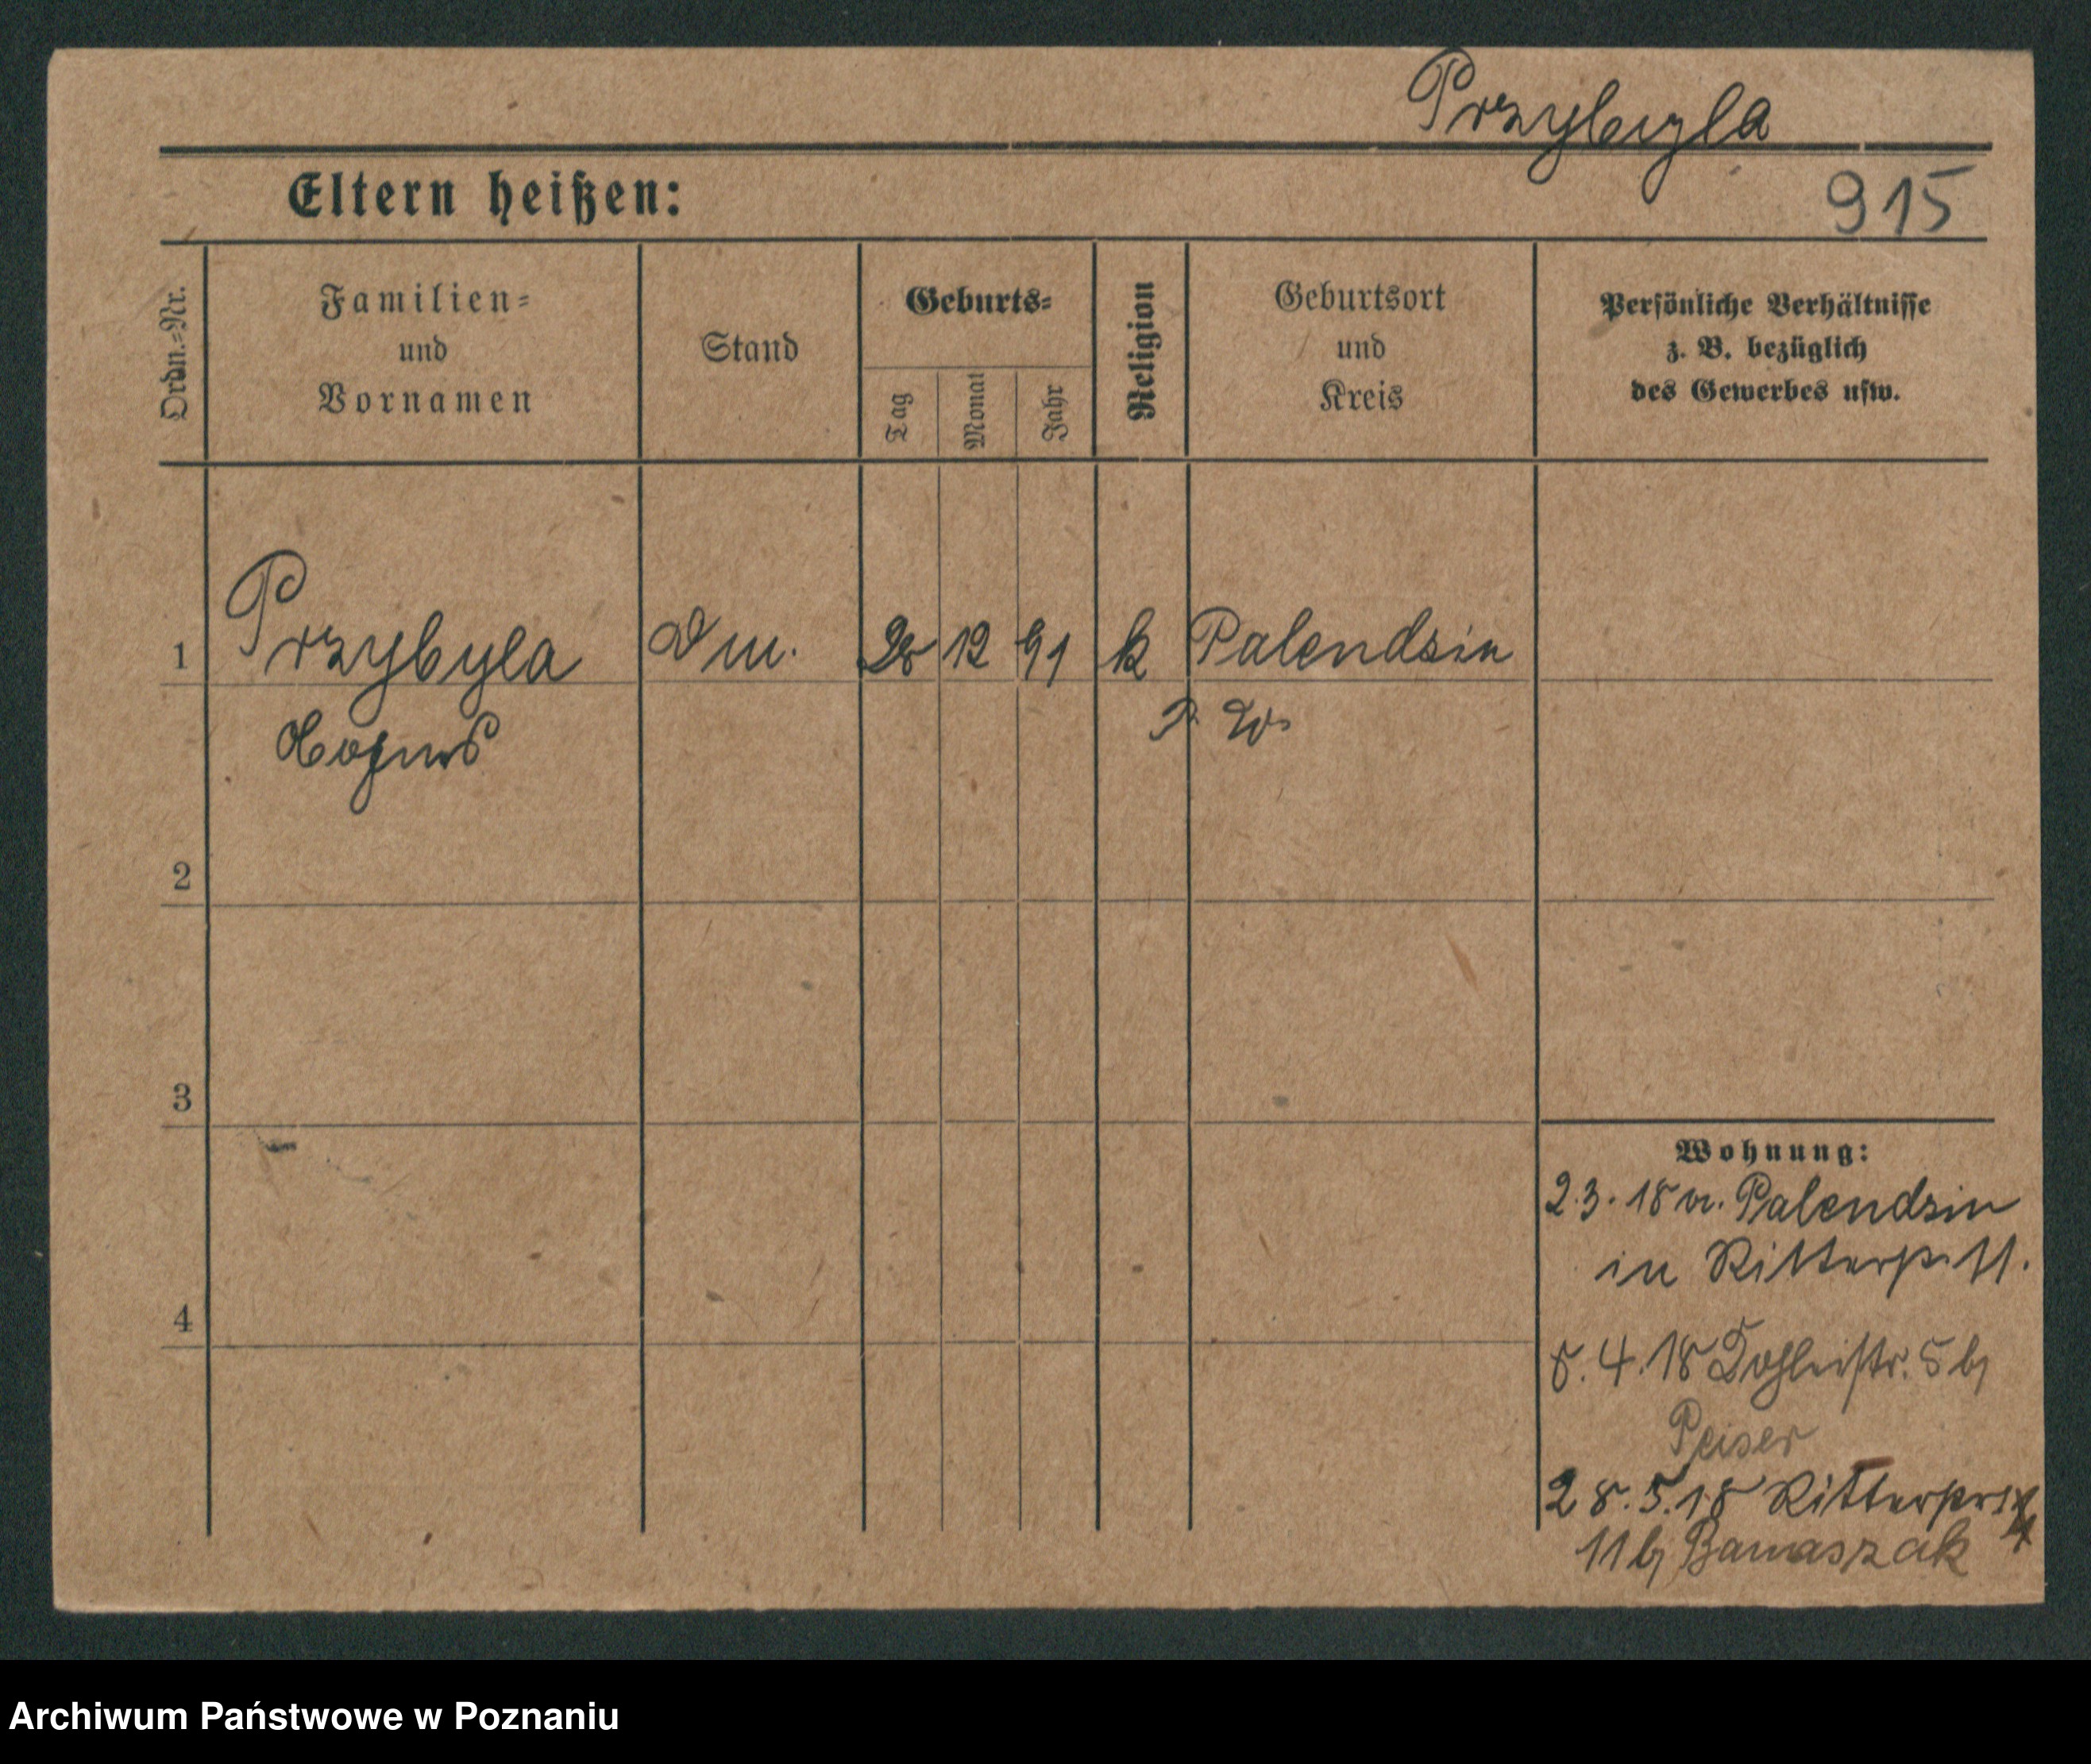 Przybyla
Eltern heißen:
915
Ordn.=Nr.
Familien=
und
Vornamen
Stand
Geburts=
Tag
Monat
Jahr
Religion
Geburtsort
und
Kreis
Persönliche Verhältnisse
z. B. bezüglich
des Gewerbes usw.
1 Przybyla 12 91 k Palendzin
P. W.
2
3
4
Wohnung:
2.3.18 v. Palendzin
in Ritterp. 11.
8.4.18 5 b/
Peiser
28.5.18
11 b/ Banaszak
Archiwum Państwowe w Poznaniu